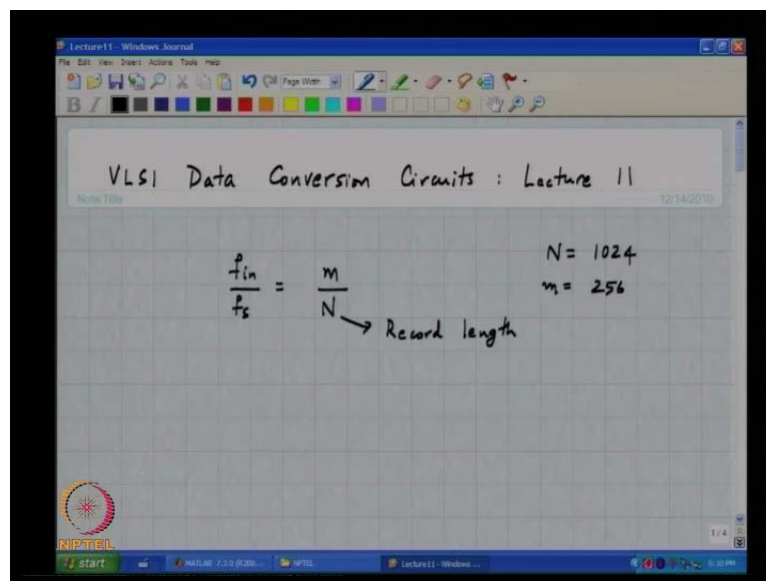 Lecture11 - Windows Journal
File Edit View Insert Actions Tools Help
Page Width
B I
VLSI Data Conversion Circuits : Lecture 11
Note Title
12/14/2010
f_in / f_s = m / N
Record length
N = 1024
m = 256
1/4
NPTEL
start
MATLAB 7.3.0 (R200...
NPTEL
Lecture11 - Windows ...
5:10 PM